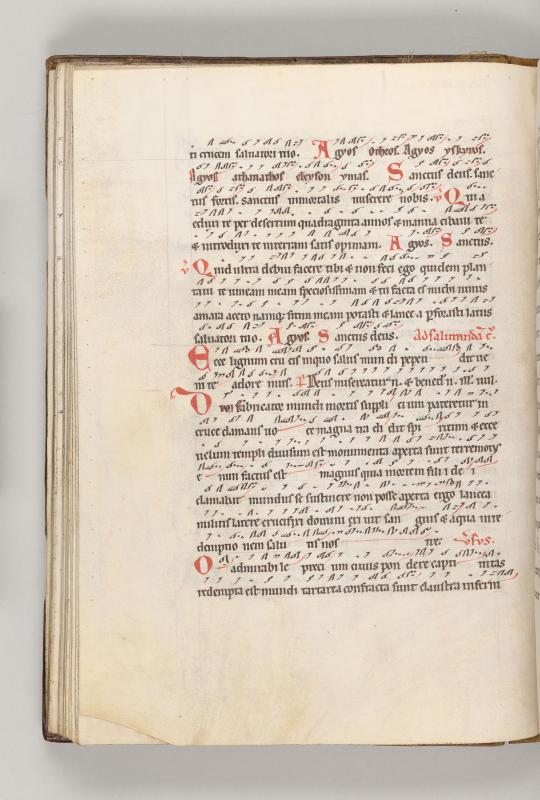 ti crucem saluatori tuo. Agyos otheos. Agyos yskyros.
Agyos athanathos eleyson ymas. Sanctus deus. sanc
tus fortis. sanctus inmortalis miserere nobis. Quia
eduxi te per desertum quadraginta annos & manna cibaui te
& introduxi te in terram satis optimam. Agyos. Sanctus.
Quid ultra debui facere tibi & non feci ego quidem plan
taui te uineam meam speciosissimam & tu facta es michi nimis
amara aceto namq; sitim meam potasti & lancea perforasti latus
saluatori tuo. Agyos Sanctus deus. Ad salutandā
Ecce lignum crucis in quo salus mundi pependit ue
nite adoremus. Deus misereatur n. & bened n.
Dum fabricator mundi mortis supplicium pateretur in
cruce clamans uoce magna tradidit spiritum & ecce
uelum templi diuisum est monumenta aperta sunt terremotus
enim factus est magnus quia mortem filii dei
clamabat mundus se sustinere non posse aperta ergo lancea
militis latere crucifixi domini exiuit sanguis & aqua in re
demptionem salutis nostre: Vsus.
O admirabile precium cuius pondere captiuitas
redempta est mundi tartarea confracta sunt claustra inferni